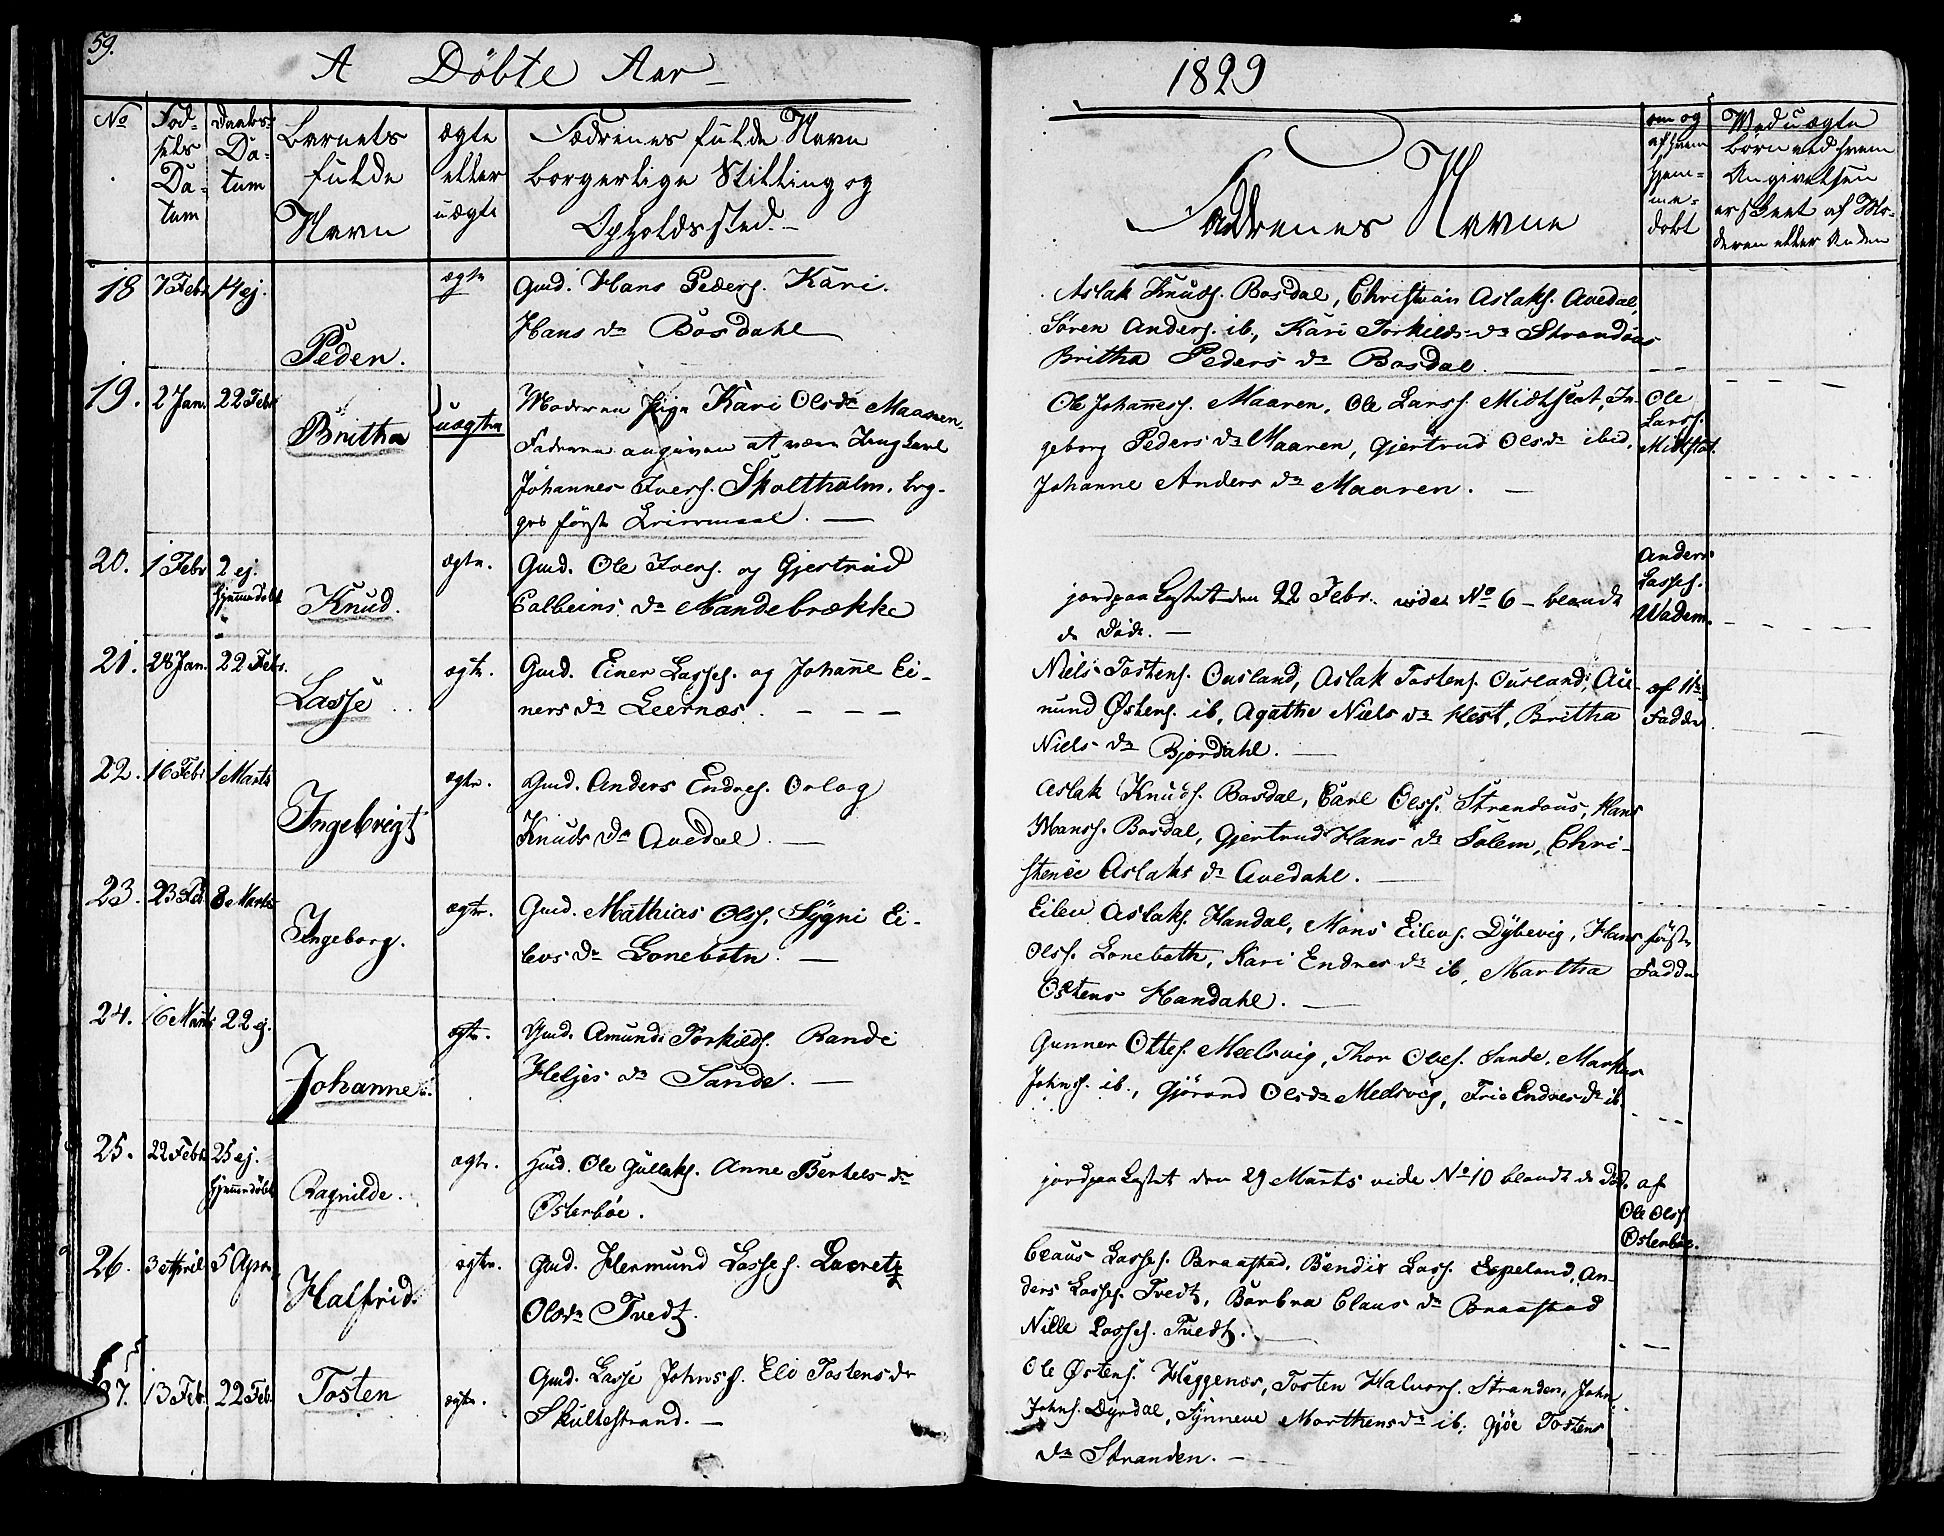 59.
A Döbte Aar
1829
No
Föd-
sels
Da-
tum
Daabs-
Da-
tum
Barnets
fulde
Navn
ægte
eller
uægte
Fædrenes fulde Navn
borgerlige Stilling og
Opholdssted. -
Faddrenes Navne
om og
af hvem
hjem-
me-
döbt
Ved uægte
börn ved hvem
Angivelsen
er skeet af Mo-
deren eller Anden
18 7 Febr 14 ej.
Peder.
ægte
Gmd. Hans Peders. Kari
Hans Dr Bosdahl
Aslak Knuds. Bosdal, Christian Aslaks. Avedal,
Sören Anders. ib., Kari Torkilds Dr Strandous
Britha Peders Dr Bosdal.
19. 2 Jan. 22 Febr
Britha
uægte
Moderen Pige Kari Olsdr Maaren.
Faderen angiven at være Ungkarl
Johannes Ivers. Skoltholm, beg-
ges förste Leiermaal. —
Ole Johanness. Maaren, Ole Larss. Midtslot, In-
geborg Peders Dr Maaren, Gjertrud Olsdr ibid.
Johanne Anders Dr Maaren. —
Ole
Larss.
Midtslot.
20. 1 Febr 2 ej.
hjemmedöbt
Knud.
ægte.
Gmd. Ole Ivers. og Gjertrud
Colbeins Dr Nandebrække
jordpaakastet den 22 Febr. vide No 6 - blandt
de Döde. —
Anders
Lasses.
Wadem.
21. 28 Jan. 22 Febr.
Lasse
ægte.
Gmd. Einer Lasses. og Johanne Ei-
ners Dr Leernæs.
Niels Tostens. Ousland, Aslak Tostens. Ousland, Au-
mund Østens. ib, Agathe Niels Dr Hest, Britha
Niels Dr Bjordahl. —
af 1ste
Fadder
22. 16 Febr 1 Marts
Ingebrigt
ægte.
Gmd. Anders Endres. Orlog
Knuds Dr Avedal. —
Aslak Knuds. Bosdal, Carl Olss. Strandous, Hans
Monss. Bosdal, Gjertrud Hans Dr Solem, Chri-
stence Aslaks Dr Avedahl. —
23. 23 Feb 8 Marts
Ingeborg.
ægte.
Gmd. Mathias Olss. Sygni Ei-
levs Dr Lonebotn. —
Eilev Aslaks. Handal, Mons Eilevs. Dybevig, Hans
Olss. Lonebotn, Kari Endres Dr ib, Martha
Ostens Handahl. —
förste
Fadder
24. 16 Marts 22 ej.
Johanne.
ægte.
Gmd. Amund Torkilds. Randi
Heljes Dr Sande. —
Gunner Ottes. Meelsvig, Thor Oles. Sande, Markus
Johnss. ib., Gjörond Olsdr Meelsvig, Trie Endres Dr ib.
25. 22 Febr. 25 ej.
hjemmedöbt
Ragnilde.
ægte.
Gmd. Ole Gullaks. Anne Berthels Dr
Østerböe.
jordpaakastet den 29 Marts vide No 10 blandt de Död.
af
Ole Olss.
Österböe.
26. 3 April 5 Apr.
Halfrid.
ægte.
Gmd. Hermund Lasses. Lavretz
Olsdr Tvedt.
Claus Lasses. Braastad, Bendix Lass. Espeland, An-
ders Lasses. Tvedt, Barbra Claus Dr Braastad
Nille Lasses. Tvedt. —
27. 13 Febr 22 Feb.
Tosten
ægte.
Gmd. Lasse Johnss. Eli Tostens Dr
Skultestrand. —
Ole Østens. Heggenæs, Tosten Halvors. Stranden, John
Johns. Dyrdal, Synneve Marthens Dr ib, Gjöe Tostens
Dr Stranden. —